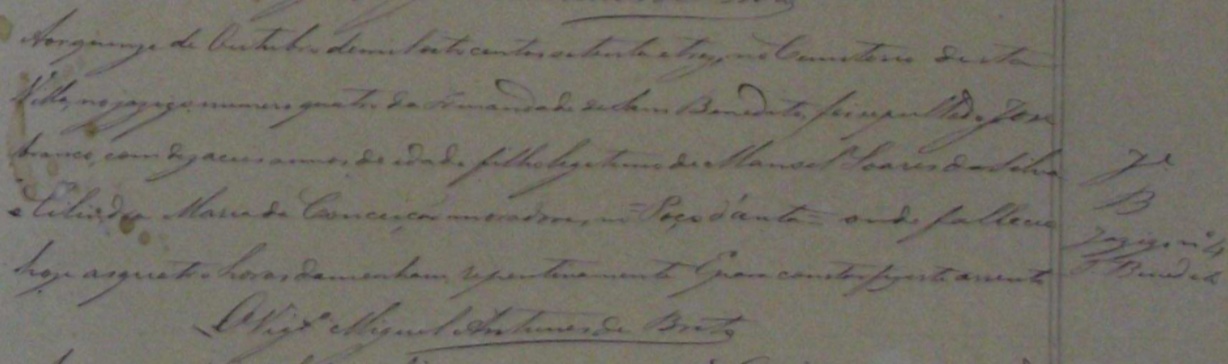 Aos quinze de Outubro de mil oito centos setenta e tres, no Cemiterio desta
Villa, no jazigo numero quatro da Irmandade de Sam Benedito, foi sepultado Jose
branco, com dezaseis annos de idade filho legitimo de Manoel Soares da Silva
e Maria da Conceiçao moradores, no Poço d'anta onde falleceu
hoje as quatro horas da manham repentinamente E para constar fiz este assento
O Vigr.º Miguel Antunes de Brito
Je
B
Jazigo nº 4
S Benedito